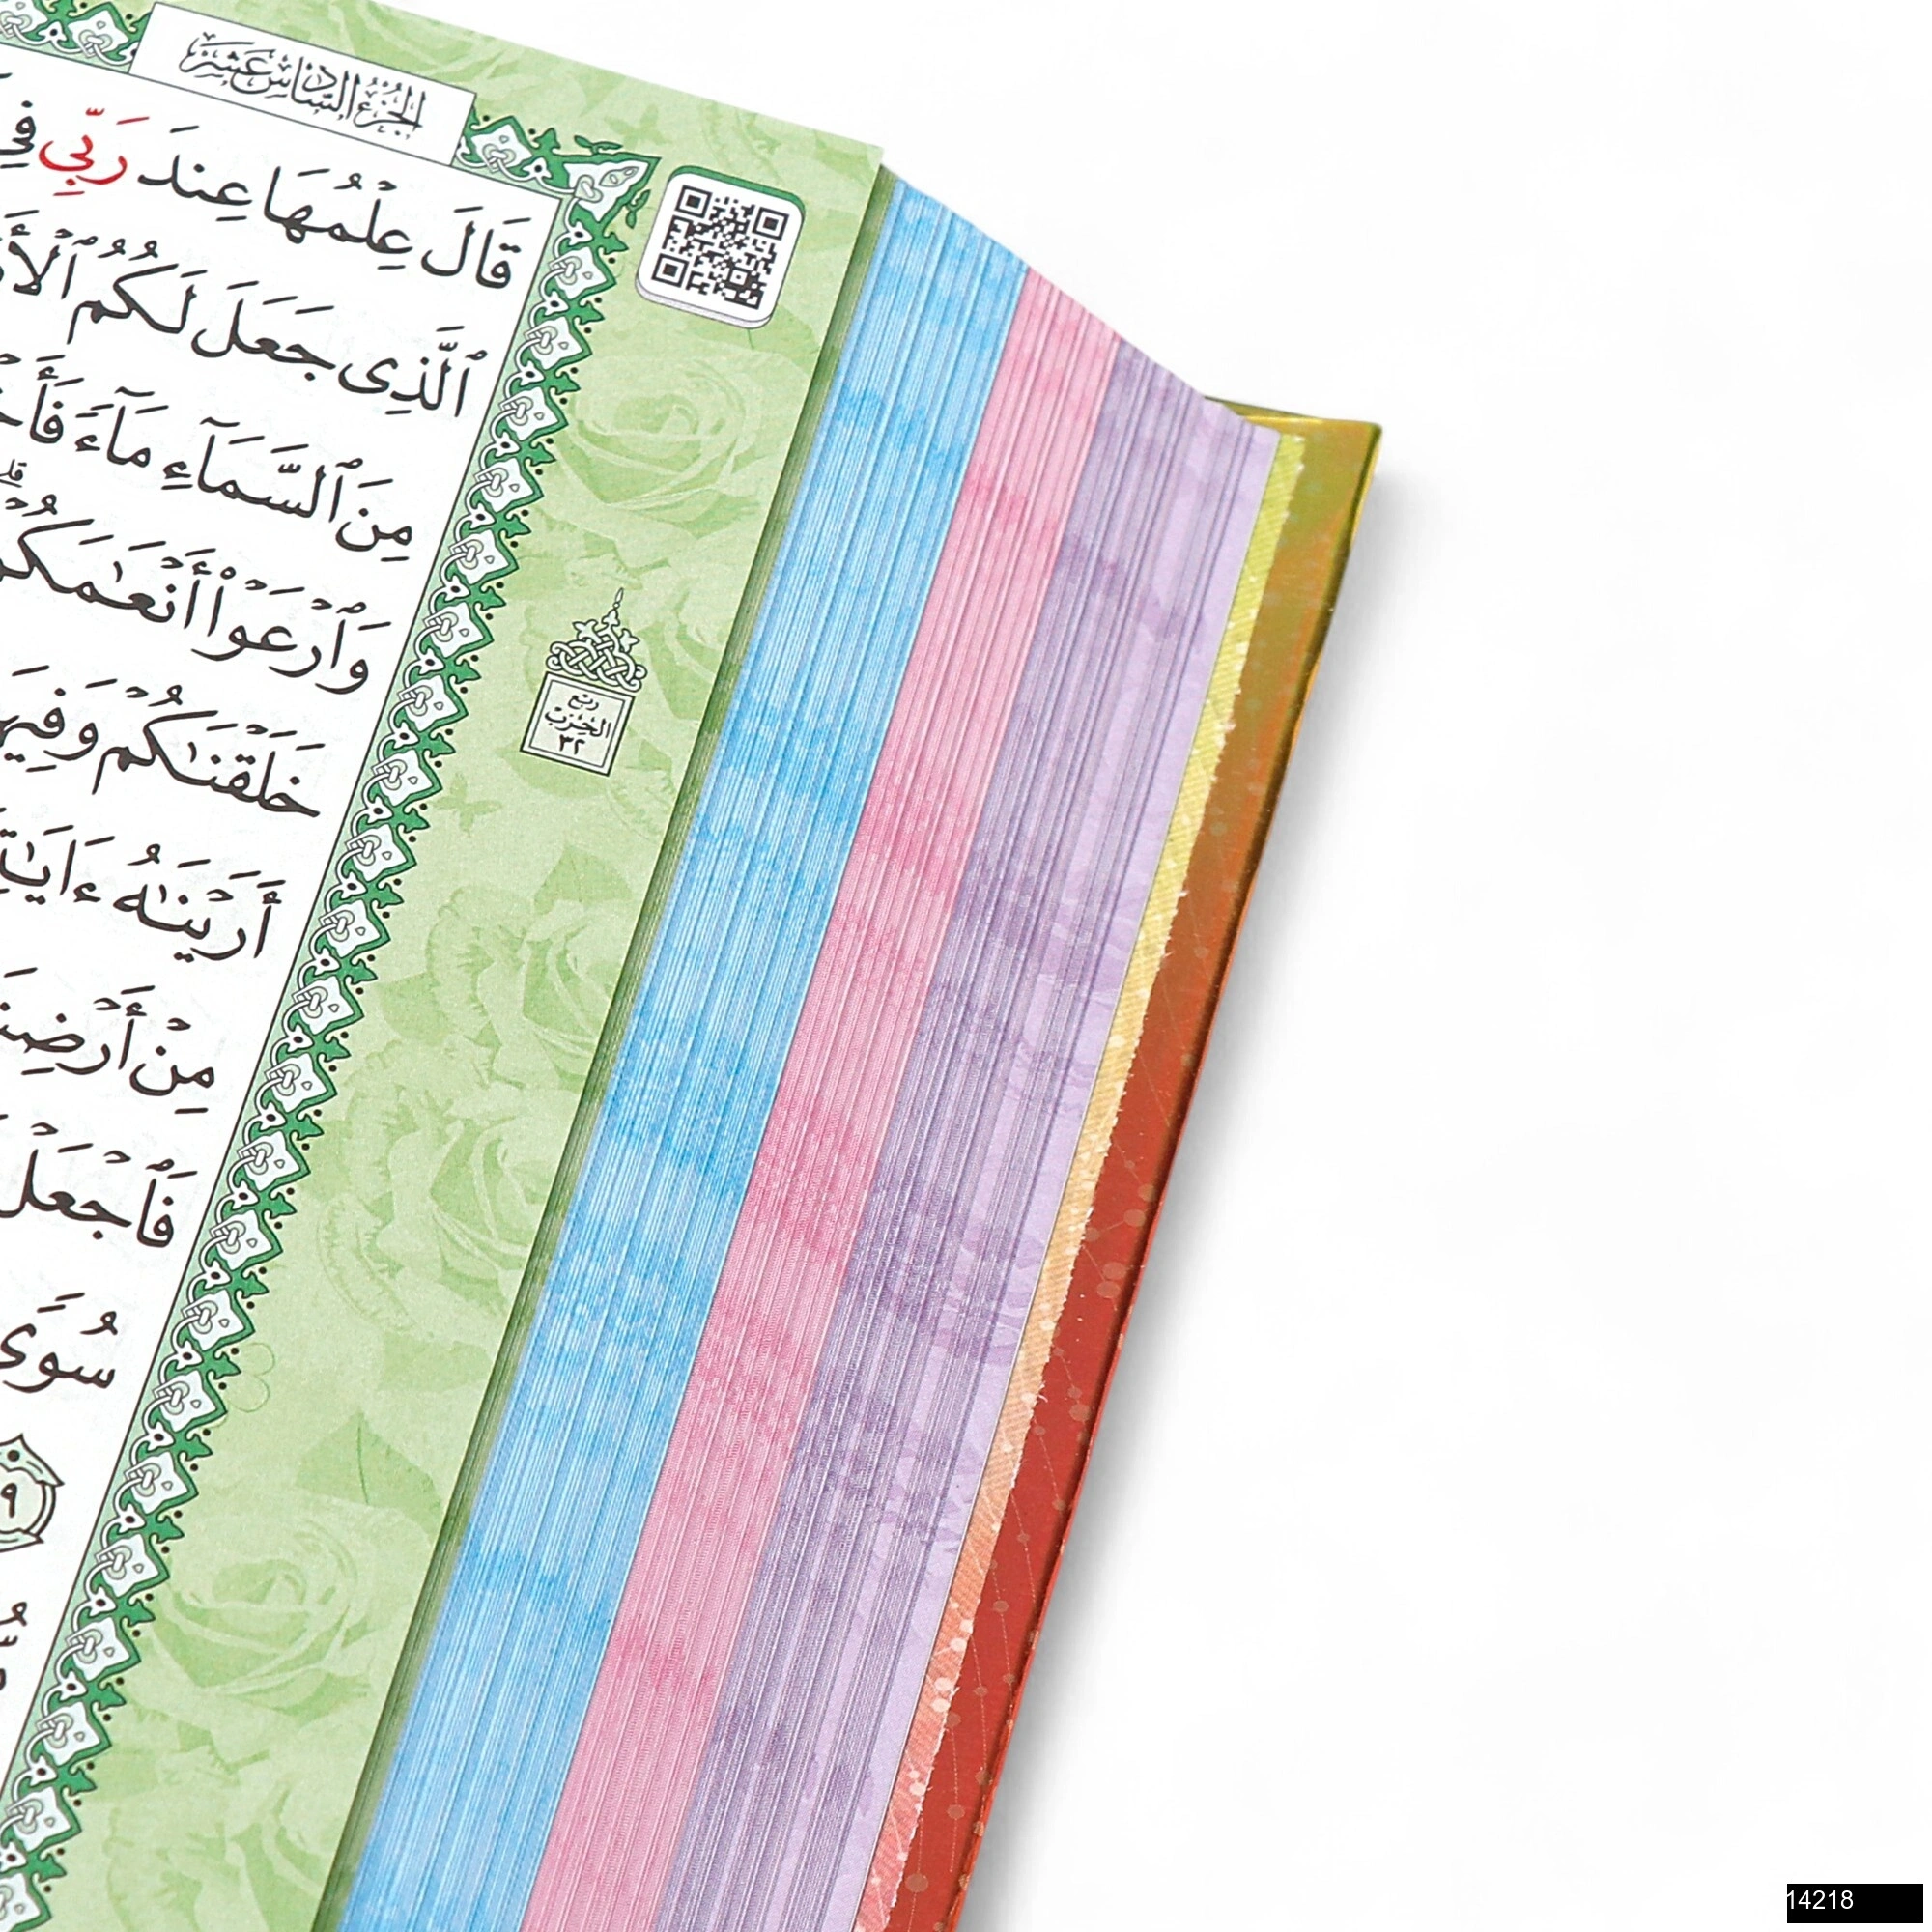 الجزء السادس عشر
قَالَ عِلْمُهَا عِندَ رَبِّي فِي
ٱلَّذِى جَعَلَ لَكُمُ ٱلْأَ
مِنَ ٱلسَّمَآءِ مَآءً فَأَخْ
وَٱرْعَوْا۟ أَنْعَٰمَكُمْ
خَلَقْنَٰكُمْ وَفِيهَا
أَرَيْنَٰهُ ءَايَٰتِ
مِنْ أَرْضِنَا
فَٱجْعَلْ
سُوًى
ربع
الحزب
٣٢
14218